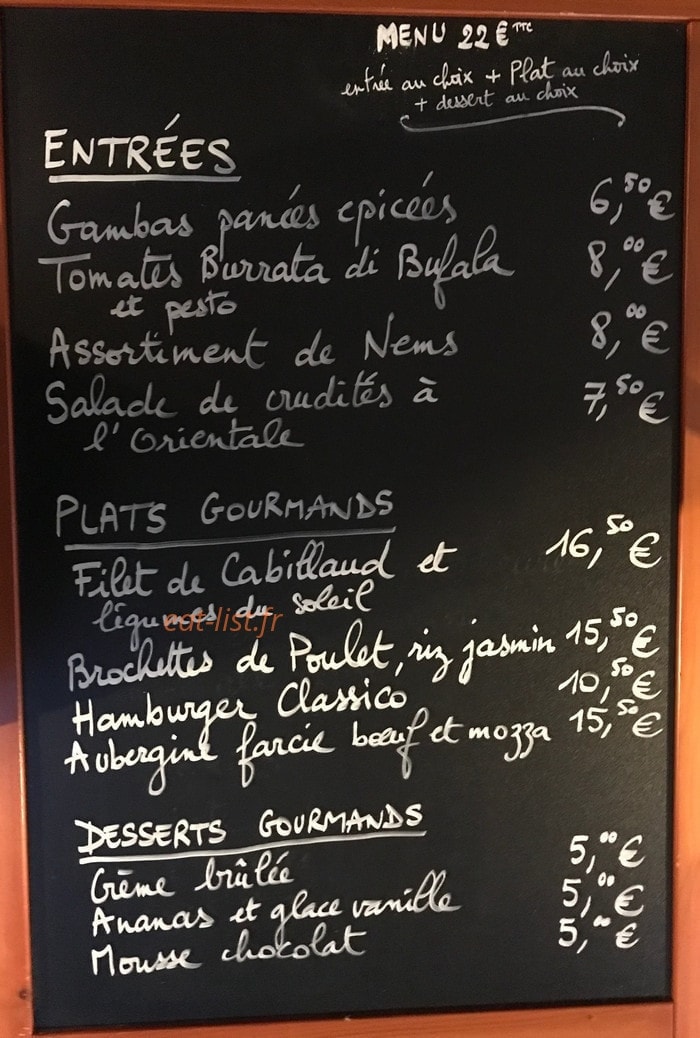 MENU 22€ TTC
entrée au choix + Plat au choix
+ dessert au choix
ENTRÉES
Gambas panées epicées 6,50€
Tomates Burrata di Bufala 8,00€
et pesto
Assortiment de Nems 8,00€
Salade de crudités à 7,50€
l'Orientale
PLATS GOURMANDS
Filet de Cabillaud et 16,50€
légumes du soleil
eat-list.fr
Brochettes de Poulet, riz jasmin 15,50€
Hamburger Classico 10,50€
Aubergine farcie bœuf et mozza 15,50€
DESSERTS GOURMANDS
Crème brûlée 5,00€
Ananas et glace vanille 5,00€
Mousse chocolat 5,00€